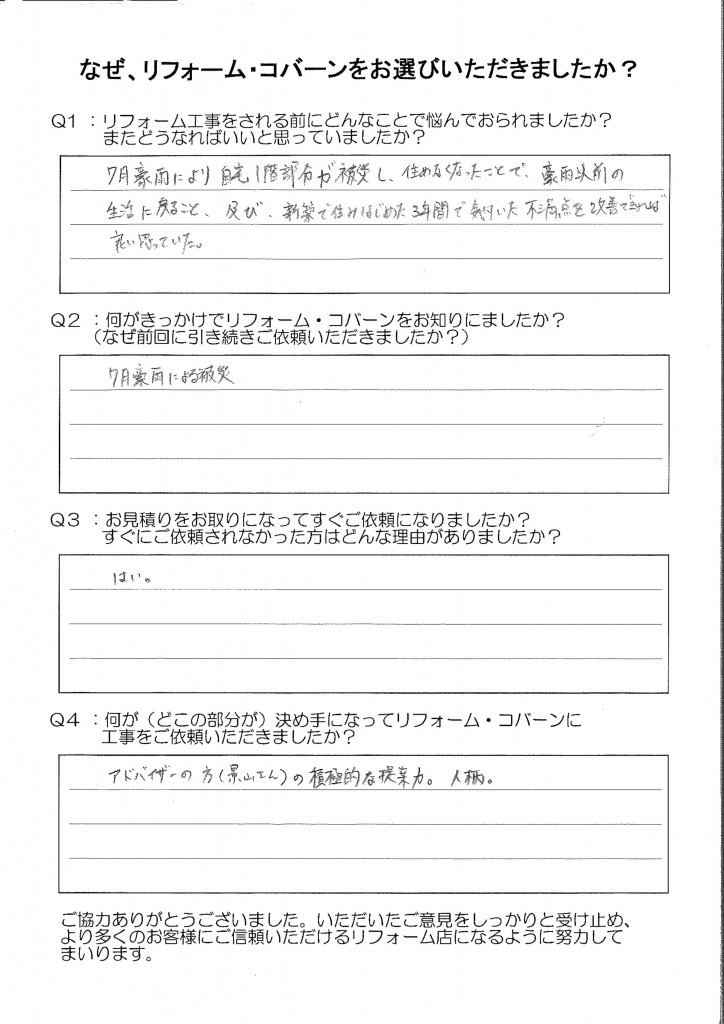 なぜ、リフォーム・コバーンをお選びいただきましたか？
Q1 ：リフォーム工事をされる前にどんなことで悩んでおられましたか？
またどうなればいいと思っていましたか？
7月豪雨により自宅1階部分が被災し、住めなくなったことで、豪雨以前の
生活に戻ること、及び、新築で住みはじめた3年間で気付いた不満点を改善できれば
良い思っていた。
Q2 ：何がきっかけでリフォーム・コバーンをお知りにましたか？
（なぜ前回に引き続きご依頼いただきましたか？）
7月豪雨による被災
Q3 ：お見積りをお取りになってすぐご依頼になりましたか？
すぐにご依頼されなかった方はどんな理由がありましたか？
はい。
Q4 ：何が（どこの部分が）決め手になってリフォーム・コバーンに
工事をご依頼いただきましたか？
アドバイザーの方（景山さん）の積極的な提案力。人柄。
ご協力ありがとうございました。いただいたご意見をしっかりと受け止め、
より多くのお客様にご信頼いただけるリフォーム店になるように努力して
まいります。